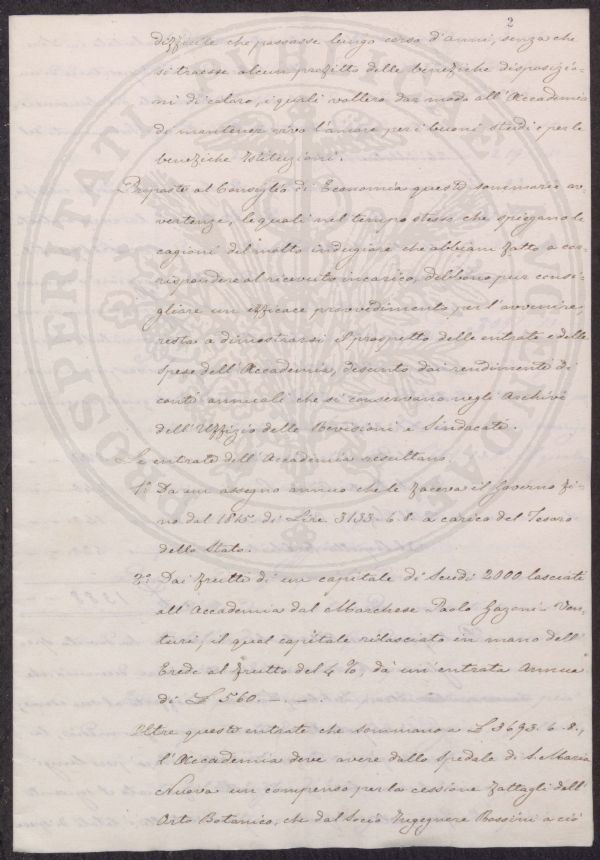 2
difficile che passasse lungo corso d'anni, senza che
si traesse alcun profitto delle benefiche disposizio-
ni di coloro, i quali vollero dar modo all'Accademia
di mantener vivo l'amore per i buoni studi e per le
benefiche Istituzioni.
Preposte al Consiglio di Economia queste sommarie av-
vertenze, le quali nel tempo stesso che spiegano le
cagioni del molto indugiare che abbiam fatto a cor-
rispondere al ricevuto incarico, debbono pur consi-
gliare un efficace provvedimento per l'avvenire,
resta a dimostrarsi il prospetto delle entrate e delle
spese dell'Accademia, desunto dai rendimenti di
conti annuali che si conservano negli Archivi
dell'Uffizio delle Revisioni e Sindacati.
Le entrate dell'Accademia resultano
1º Da un assegno annuo che le faceva il Governo fi-
no dal 1815 di Lire 3133. 6. 8. a carico del Tesoro
dello Stato.
2º Dai frutti di un capitale di Scudi 2000 lasciati
all'Accademia dal Marchese Paolo Garzoni Ven-
turi, il qual capitale rilasciato in mano dell'
Erede al frutto del 4 %, dà un'entrata Annua
di £ 560. – –.
Oltre queste entrate che sommano a £ 3693. 6. 8.,
l'Accademia deve avere dallo Spedale di S. Maria
Nuova un compenso per la cessione fattagli dell'
Orto Botanico, che dal Socio Ingegnere Rossini a ciò
PROSPERITATI PUBLICAE AUGENDAE